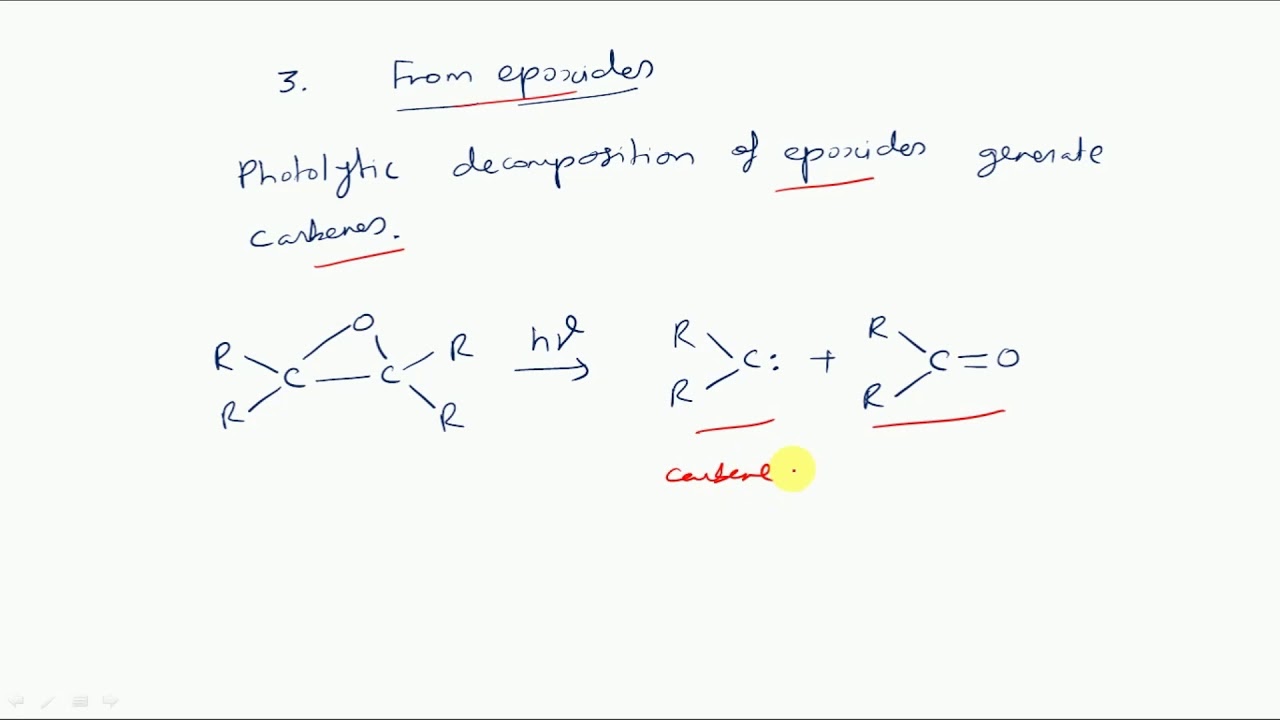 3. From epoxides
Photolytic decomposition of epoxides generate
carbenes.
O
R R hν R R
C C C: + C=O
R R R R
carbene